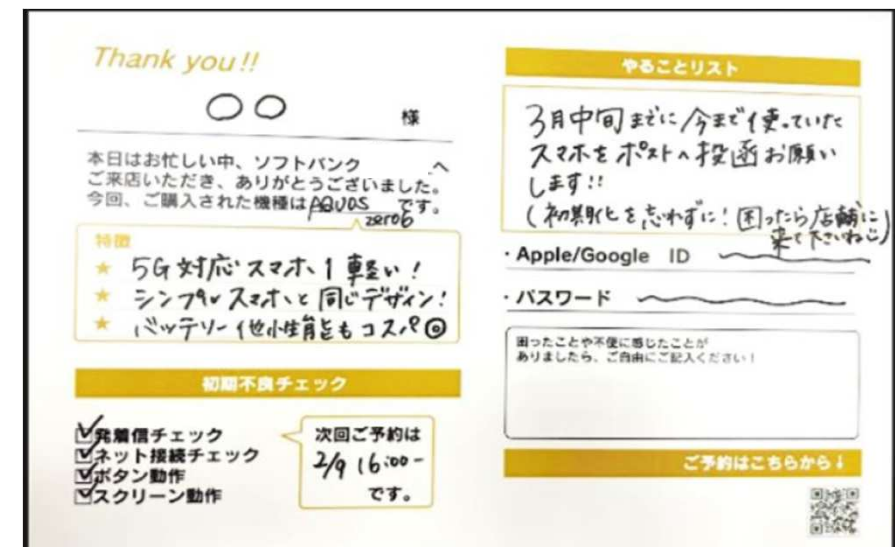 Thank you!!
〇〇 様
本日はお忙しい中、ソフトバンク へ
ご来店いただき、ありがとうございました。
今回、ご購入された機種はAQUOS zero6 です。
特徴
★ 5G対応スマホ、1軽い!
★ シンプルスマホと同じデザイン!
★ バッテリー他性能もコスパ◎
初期不良チェック
☑発着信チェック
☑ネット接続チェック
☑ボタン動作
☑スクリーン動作
次回ご予約は
2/9 16:00-
です。
やることリスト
3月中旬までに今まで使っていた
スマホをポストへ投函お願い
します!!
(初期化を忘れずに!困ったら店舗に
来て下さいねじ)
・Apple/Google ID
・パスワード
困ったことや不便に感じたことが
ありましたら、ご自由にご記入ください!
ご予約はこちらから↓